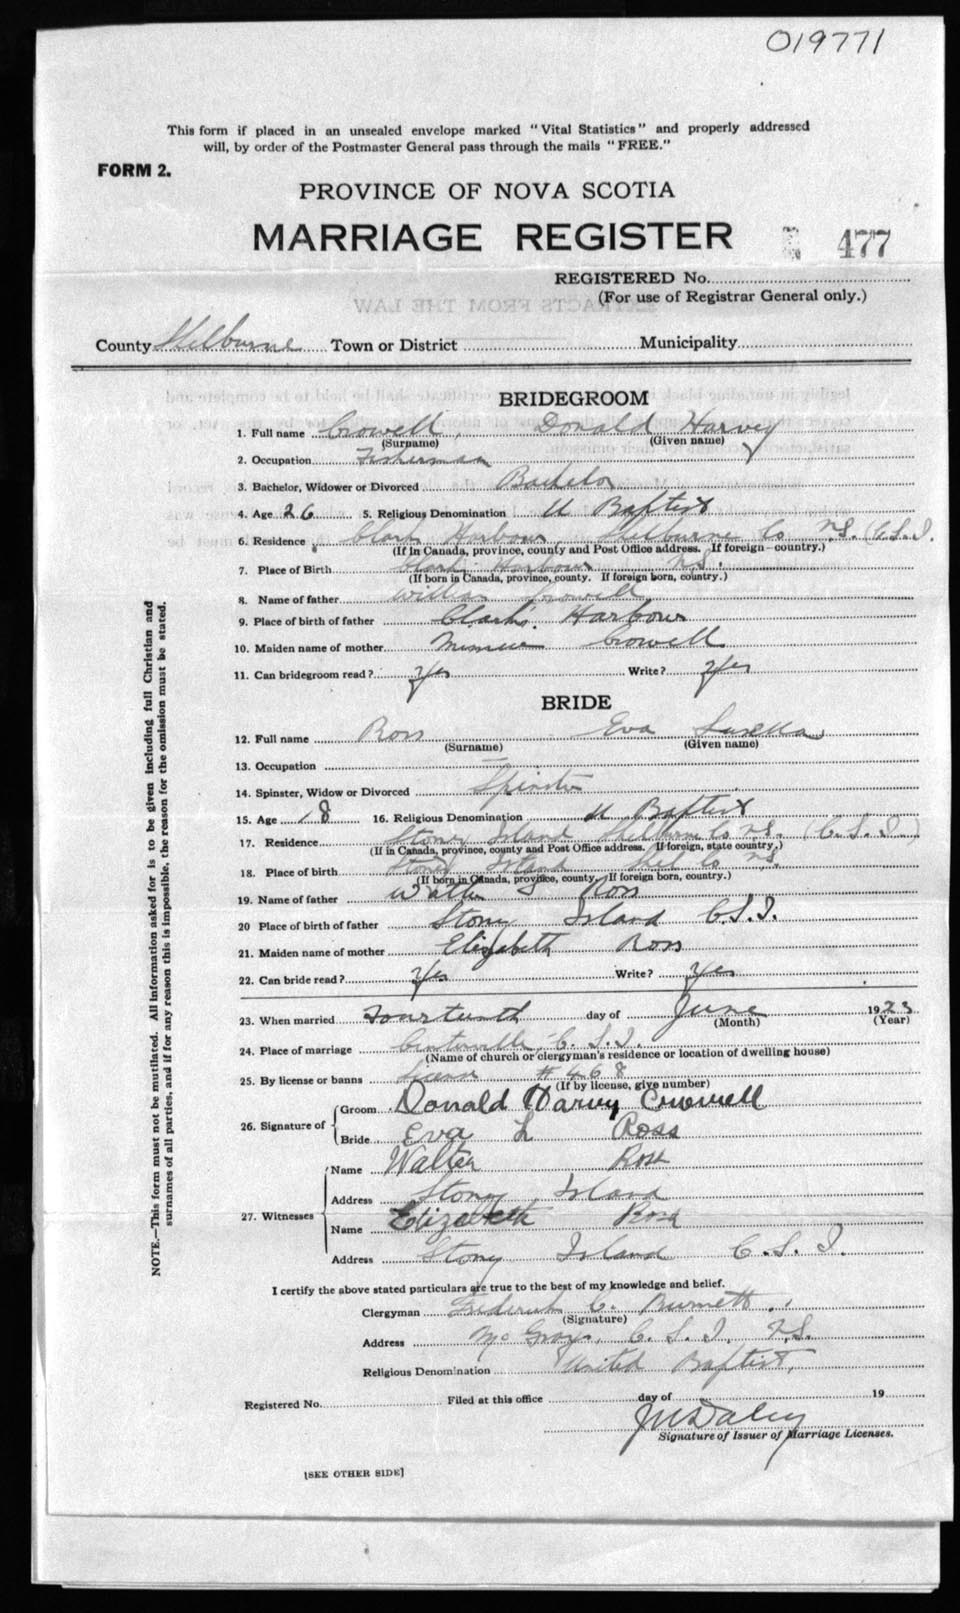 019771
This form if placed in an unsealed envelope marked "Vital Statistics" and properly addressed
will, by order of the Postmaster General pass through the mails "FREE."
FORM 2.
PROVINCE OF NOVA SCOTIA
MARRIAGE REGISTER
477
REGISTERED No.
(For use of Registrar General only.)
County Shelburne Town or District Municipality
BRIDEGROOM
1. Full name Crowell, Donald Harvey
(Surname) (Given name)
2. Occupation Fisherman
3. Bachelor, Widower or Divorced Bachelor
4. Age 26 5. Religious Denomination U Baptist
6. Residence Clark Harbour, Shelburne Co N.S. (C.S.I.
(If in Canada, province, county and Post Office address. If foreign—country.)
7. Place of Birth Clark Harbour N.S.
(If born in Canada, province, county. If foreign born, country.)
8. Name of father Crowell
9. Place of birth of father Clark's Harbour
10. Maiden name of mother Crowell
11. Can bridegroom read? Yes Write? Yes
BRIDE
12. Full name Ross Eva Luella
(Surname) (Given name)
13. Occupation —
14. Spinster, Widow or Divorced Spinster
15. Age 18 16. Religious Denomination U Baptist
17. Residence Stoney Island Shelburne Co N.S. (C.S.I.)
(If in Canada, province, county and Post Office address. If foreign, state country.)
18. Place of birth Stony Island Shel Co N.S.
(If born in Canada, province, county. If foreign born, country.)
19. Name of father Walter Ross
20 Place of birth of father Stony Island C.S.I.
21. Maiden name of mother Elizabeth Ross
22. Can bride read? Yes Write? Yes
23. When married Fourteenth day of June 1923
(Month) (Year)
24. Place of marriage Centreville, C.S.I.
(Name of church or clergyman's residence or location of dwelling house)
25. By license or banns License #468
(If by license, give number)
26. Signature of Groom Donald Harvey Crowell
Bride Eva L Ross
27. Witnesses Name Walter Ross
Address Stony Island
Name Elizabeth Ross
Address Stony Island C.S.I.
I certify the above stated particulars are true to the best of my knowledge and belief.
Clergyman Frederick C. Burnett
(Signature)
Address McGrays, C.S.I. N.S.
Religious Denomination United Baptist.
Registered No. Filed at this office day of 19
Signature of Issuer of Marriage Licenses.
[SEE OTHER SIDE]
NOTE.—This form must not be mutilated. All information asked for is to be given including full Christian and
surnames of all parties, and if for any reason this is impossible, the reason for the omission must be stated.